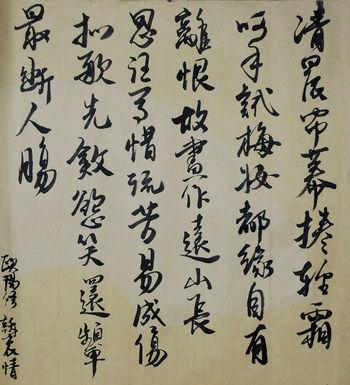 清晨帘幕捲輕霜
呵手試梅妝都緣自有
離恨故畫作遠山長
思往事惜流芳易成傷
拟歌先斂欲笑還顰
最斷人腸
歐陽修 訴衷情